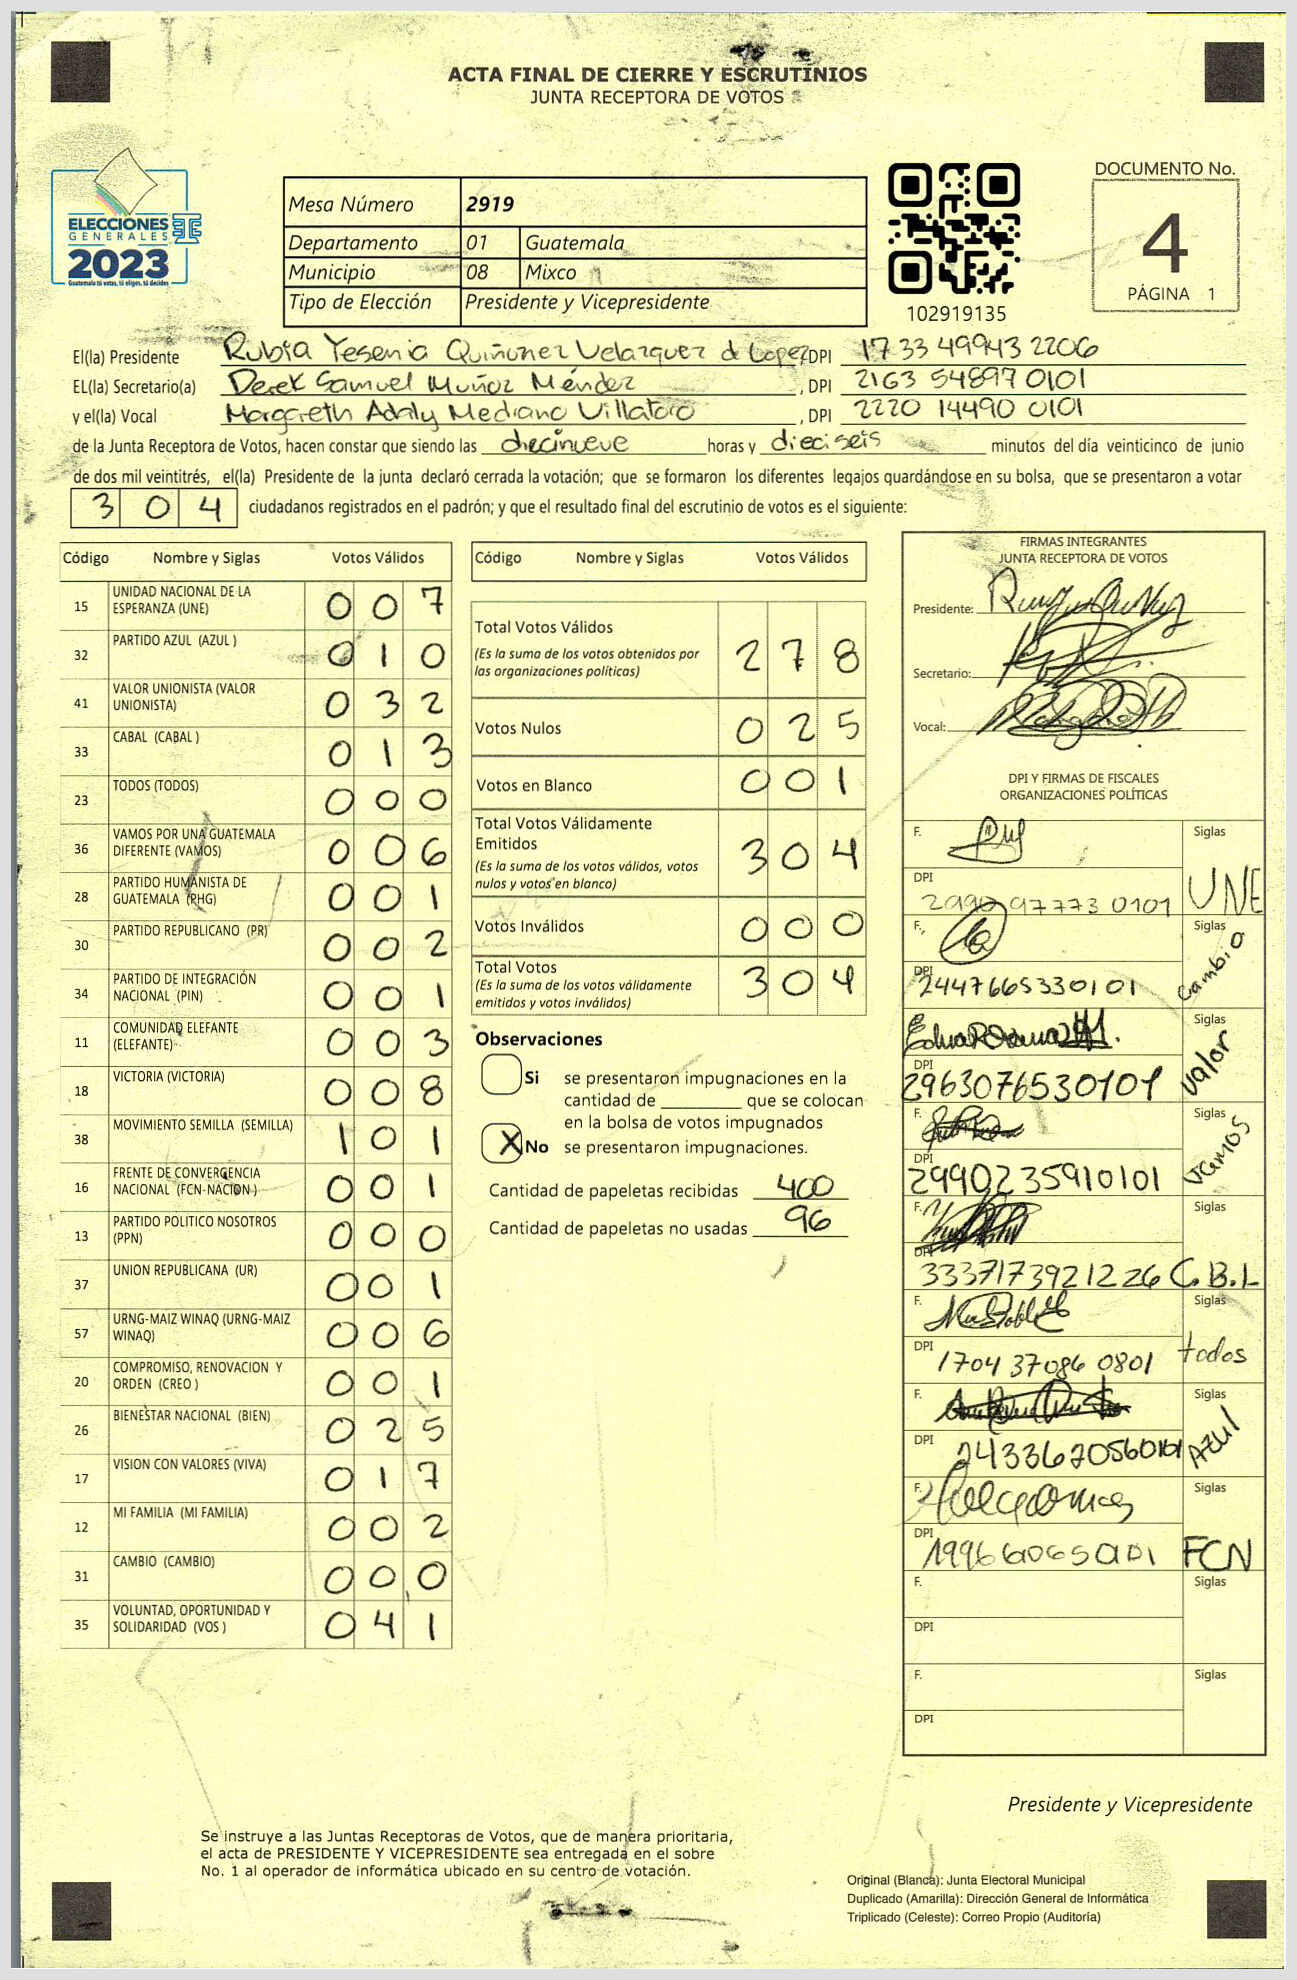 ACTA FINAL DE CIERRE Y ESCRUTINIOS
JUNTA RECEPTORA DE VOTOS
ELECCIONES
GENERALES
2023
Guatemala tú votas, tú eliges, tú decides
Mesa Número 2919
Departamento 01 Guatemala
Municipio 08 Mixco
Tipo de Elección Presidente y Vicepresidente
102919135
DOCUMENTO No.
4
PÁGINA 1
El(la) Presidente Rubia Yesenia Quiñonez Velazquez d Lopez, DPI 17 33 49943 2206
EL(la) Secretario(a) Derek Samuel Muñoz Méndez, DPI 2163 54897 0101
y el(la) Vocal Margareth Adaly Mediano Villatoro, DPI 2220 14490 0101
de la Junta Receptora de Votos, hacen constar que siendo las diecinueve horas y dieciseis minutos del día veinticinco de junio
de dos mil veintitrés, el(la) Presidente de la junta declaró cerrada la votación; que se formaron los diferentes legajos guardándose en su bolsa, que se presentaron a votar
304 ciudadanos registrados en el padrón; y que el resultado final del escrutinio de votos es el siguiente:
Código Nombre y Siglas Votos Válidos
15 UNIDAD NACIONAL DE LA ESPERANZA (UNE) 007
32 PARTIDO AZUL (AZUL ) 010
41 VALOR UNIONISTA (VALOR UNIONISTA) 032
33 CABAL (CABAL ) 013
23 TODOS (TODOS) 000
36 VAMOS POR UNA GUATEMALA DIFERENTE (VAMOS) 006
28 PARTIDO HUMANISTA DE GUATEMALA (PHG) 001
30 PARTIDO REPUBLICANO (PR) 002
34 PARTIDO DE INTEGRACIÓN NACIONAL (PIN) 001
11 COMUNIDAD ELEFANTE (ELEFANTE) 003
18 VICTORIA (VICTORIA) 008
38 MOVIMIENTO SEMILLA (SEMILLA) 101
16 FRENTE DE CONVERGENCIA NACIONAL (FCN-NACION ) 001
13 PARTIDO POLITICO NOSOTROS (PPN) 000
37 UNION REPUBLICANA (UR) 001
57 URNG-MAIZ WINAQ (URNG-MAIZ WINAQ) 006
20 COMPROMISO, RENOVACION Y ORDEN (CREO ) 001
26 BIENESTAR NACIONAL (BIEN) 025
17 VISION CON VALORES (VIVA) 017
12 MI FAMILIA (MI FAMILIA) 002
31 CAMBIO (CAMBIO) 000
35 VOLUNTAD, OPORTUNIDAD Y SOLIDARIDAD (VOS ) 041
Código Nombre y Siglas Votos Válidos
Total Votos Válidos 278
(Es la suma de los votos obtenidos por
las organizaciones políticas)
Votos Nulos 025
Votos en Blanco 001
Total Votos Válidamente
Emitidos 304
(Es la suma de los votos válidos, votos
nulos y votos en blanco)
Votos Inválidos 000
Total Votos 304
(Es la suma de los votos válidamente
emitidos y votos inválidos)
Observaciones
Si se presentaron impugnaciones en la
cantidad de ________ que se colocan
en la bolsa de votos impugnados
X No se presentaron impugnaciones.
Cantidad de papeletas recibidas 400
Cantidad de papeletas no usadas 96
FIRMAS INTEGRANTES
JUNTA RECEPTORA DE VOTOS
Presidente:
Secretario:
Vocal:
DPI Y FIRMAS DE FISCALES
ORGANIZACIONES POLÍTICAS
F. Siglas UNE
DPI 2990 97773 0101
F. Siglas Cambio
DPI 2447665330101
Siglas Valor
DPI 2963076530101
F. Siglas Vamos
DPI 2990235910101
F. Siglas C.B.L
DPI 3337173921226
F. Siglas todos
DPI 1704 37086 0801
F. Siglas AZUL
DPI 2433620560101
F. Siglas FCN
DPI
F. Siglas
DPI
F. Siglas
DPI
Presidente y Vicepresidente
Se instruye a las Juntas Receptoras de Votos, que de manera prioritaria,
el acta de PRESIDENTE Y VICEPRESIDENTE sea entregada en el sobre
No. 1 al operador de informática ubicado en su centro de votación.
Original (Blanca): Junta Electoral Municipal
Duplicado (Amarilla): Dirección General de Informática
Triplicado (Celeste): Correo Propio (Auditoría)